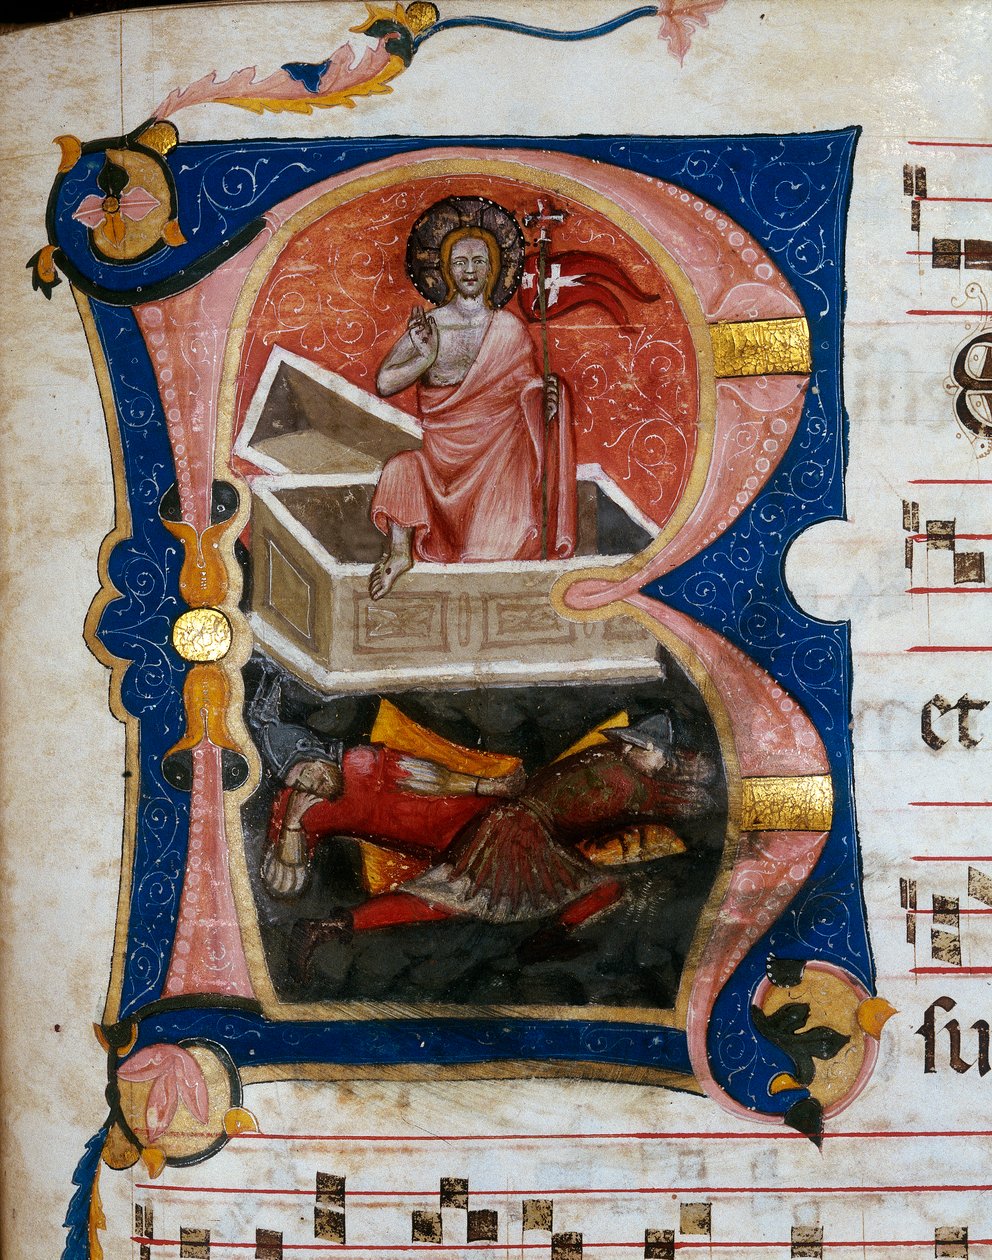 R
et
su